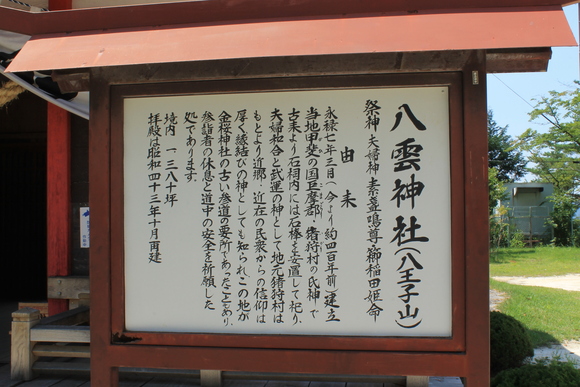 八雲神社（八王子山）
祭神 夫婦神 素盞鳴尊 御稲田姫命
由来
永禄七年三月（今より約四百年前）建立
当地甲斐の国巨摩郡 猪狩村の氏神で
古来より石祠内には石棒を安置して祀り、
夫婦和合と武運の神として地元猪狩村は
もとより近郷・近在の民衆からの信仰は
厚く縁結びの神としても知られこの地が
金桜神社の古い参道の要所であったこともあり、
参詣者の休息と道中の安全を祈願した
処であります。
境内 一三八十坪
拝殿は昭和四十三年十月再建